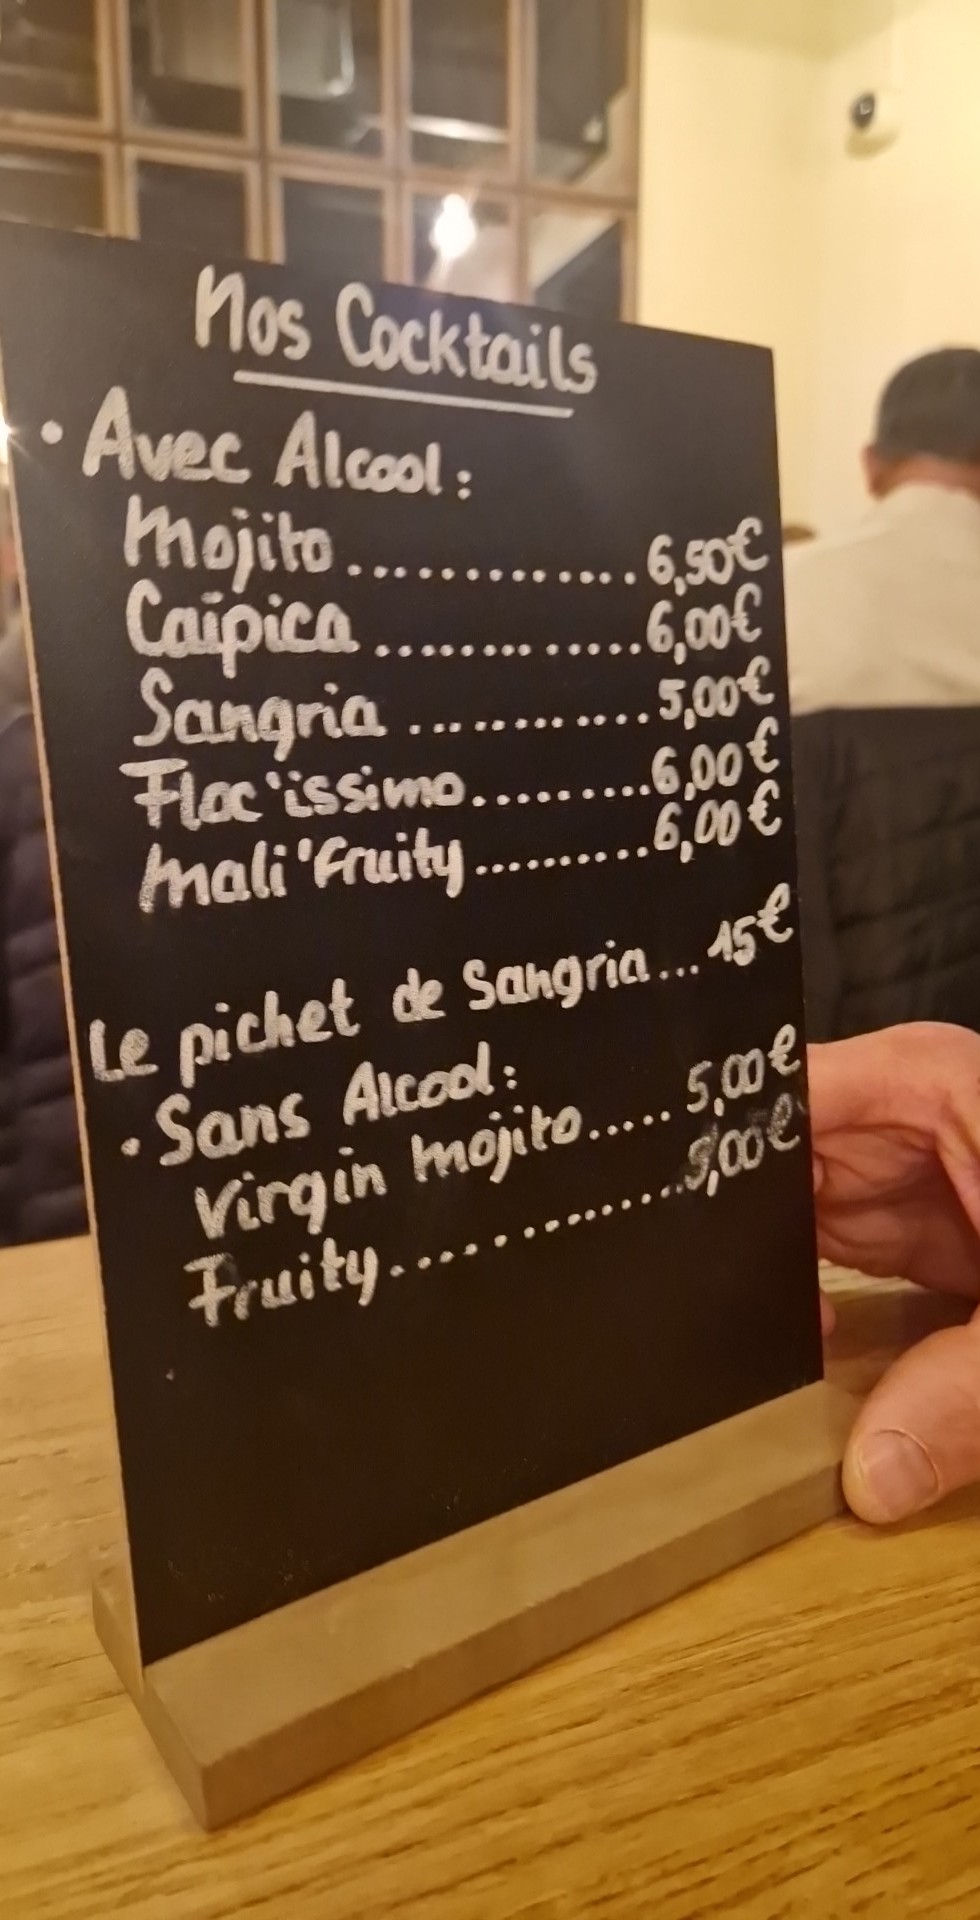 Nos Cocktails
• Avec Alcool :
Mojito ............. 6,50€
Caïpica ............. 6,00€
Sangria ............ 5,00€
Floc'issimo.......... 6,00€
Mali'Fruity.......... 6,00€
Le pichet de Sangria... 15€
• Sans Alcool :
Virgin mojito..... 5,00€
Fruity............. 5,00€